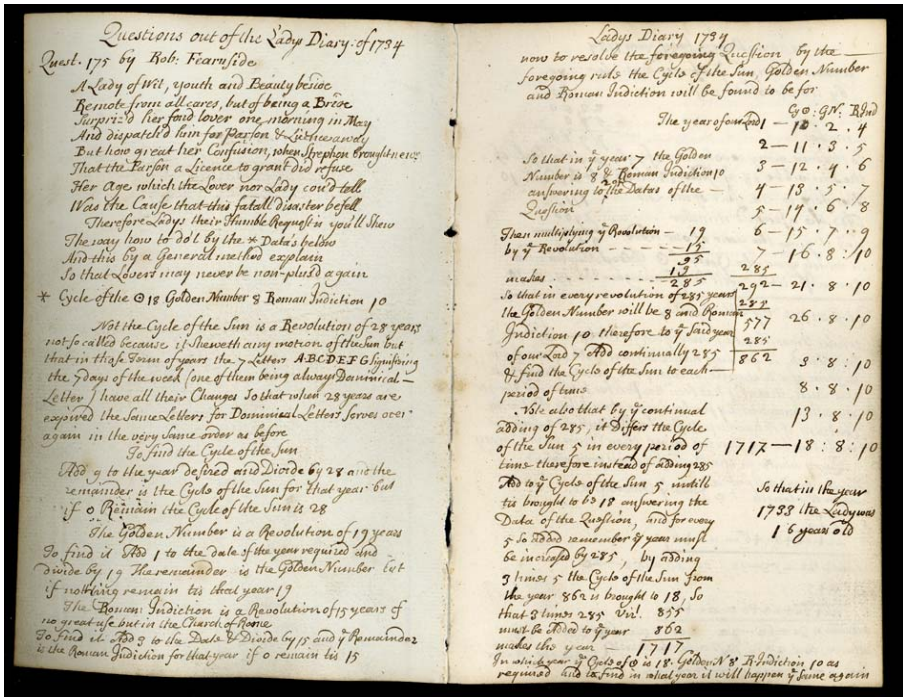 Questions out of the Ladys Diary: of 1734
Quest. 175 by Rob: Fearnside
A Lady of Wit, youth and Beauty beside
Remote from all cares, but of being a Bride
Surpriz'd her fond lover one morning in May
And dispatch'd him for Parson & Licence away
But how great her Confusion, when Strephon brought news
That the Parson a Licence to grant did refuse
Her Age which the Lover nor Lady cou'd tell
Was the Cause that this fatall disaster befell
Therefore Ladys their Humble Request is you'll shew
The way how to do't by the * Data's below
And this by a General method explain
So that Lovers may never be non-plus'd again
* Cycle of the ☉ 18 Golden Number 8 Roman Indiction 10
Not the Cycle of the Sun is a Revolution of 28 years
not so called because it sheweth any motion of the Sun but
that in those Term of years the 7 Letters A·B·C·D·E·F·G signifying
the 7 days of the week (one of them being always Dominical
Letter) have all their Changes so that when 28 years are
expired the Same Letters for Dominical Letters serves over
again in the very same order as before
To find the Cycle of the Sun
Add 9 to the year desired and Divide by 28 and the
remainder is the Cycle of the Sun for that year but
if 0 Remain the Cycle of the Sun is 28
The Golden Number is a Revolution of 19 years
To find it Add 1 to the Date of the year required and
divide by 19 The remainder is the Golden Number but
if nothing remain tis that year 19
The Roman Indiction is a Revolution of 15 years of
no great use but in the Church of Rome
To find it Add 9 to the Date & Divide by 15 and ye Remainder
is the Roman Indiction for that year if 0 remain tis 15
Ladys Diary 1734
now to resolve the foregoing Question by the
foregoing rules the Cycle of the Sun, Golden Number
and Roman Indiction will be found to be for
C☉: GN: R Ind
The year of our Lord 1 — 10 · 2 · 4
2 — 11 · 3 · 5
3 — 12 · 4 · 6
4 — 13 · 5 · 7
5 — 14 · 6 · 8
6 — 15 · 7 · 9
7 — 16 · 8 : 10
So that in ye year 7 the Golden
Number is 8 & Roman Indiction 10
answering to the Datas of the —
Question
Then multiplying ye Revolution — 19
by ye Revolution - - - - - 15
95
19
makes - - - - - 285
285
292 — 21 · 8 · 10
285
577 26 · 8 · 10
285
862 3 · 8 : 10
8 · 8 · 10
13 · 8 · 10
1717 — 18 : 8 : 10
So that in every revolution of 285 years
the Golden Number will be 8 and Roman
Indiction 10 therefore to ye said year
of our Lord 7 Add continually 285
& find the Cycle of the Sun to each
period of time
Note also that by ye continual
adding of 285, it Differs the Cycle
of the Sun 5 in every period of
time therefore instead of adding 285
Add to ye Cycle of the Sun 5 untill
tis brought to be 18 answering the
Data of the Question, and for every
5 so added remember ye year must
be increased by 285, by adding
3 times 5 the Cycle of the Sun from
the year 862 is brought to 18, So
that 3 times 285 Viz! 855
must be Added to ye year 862
makes the year — 1717
In which year ye Cycle of ☉ is 18 · Golden N 8 R · Indiction 10 as
required and to find in what year it will happen ye same again
So that in the year
1733 the Lady was
16 years old